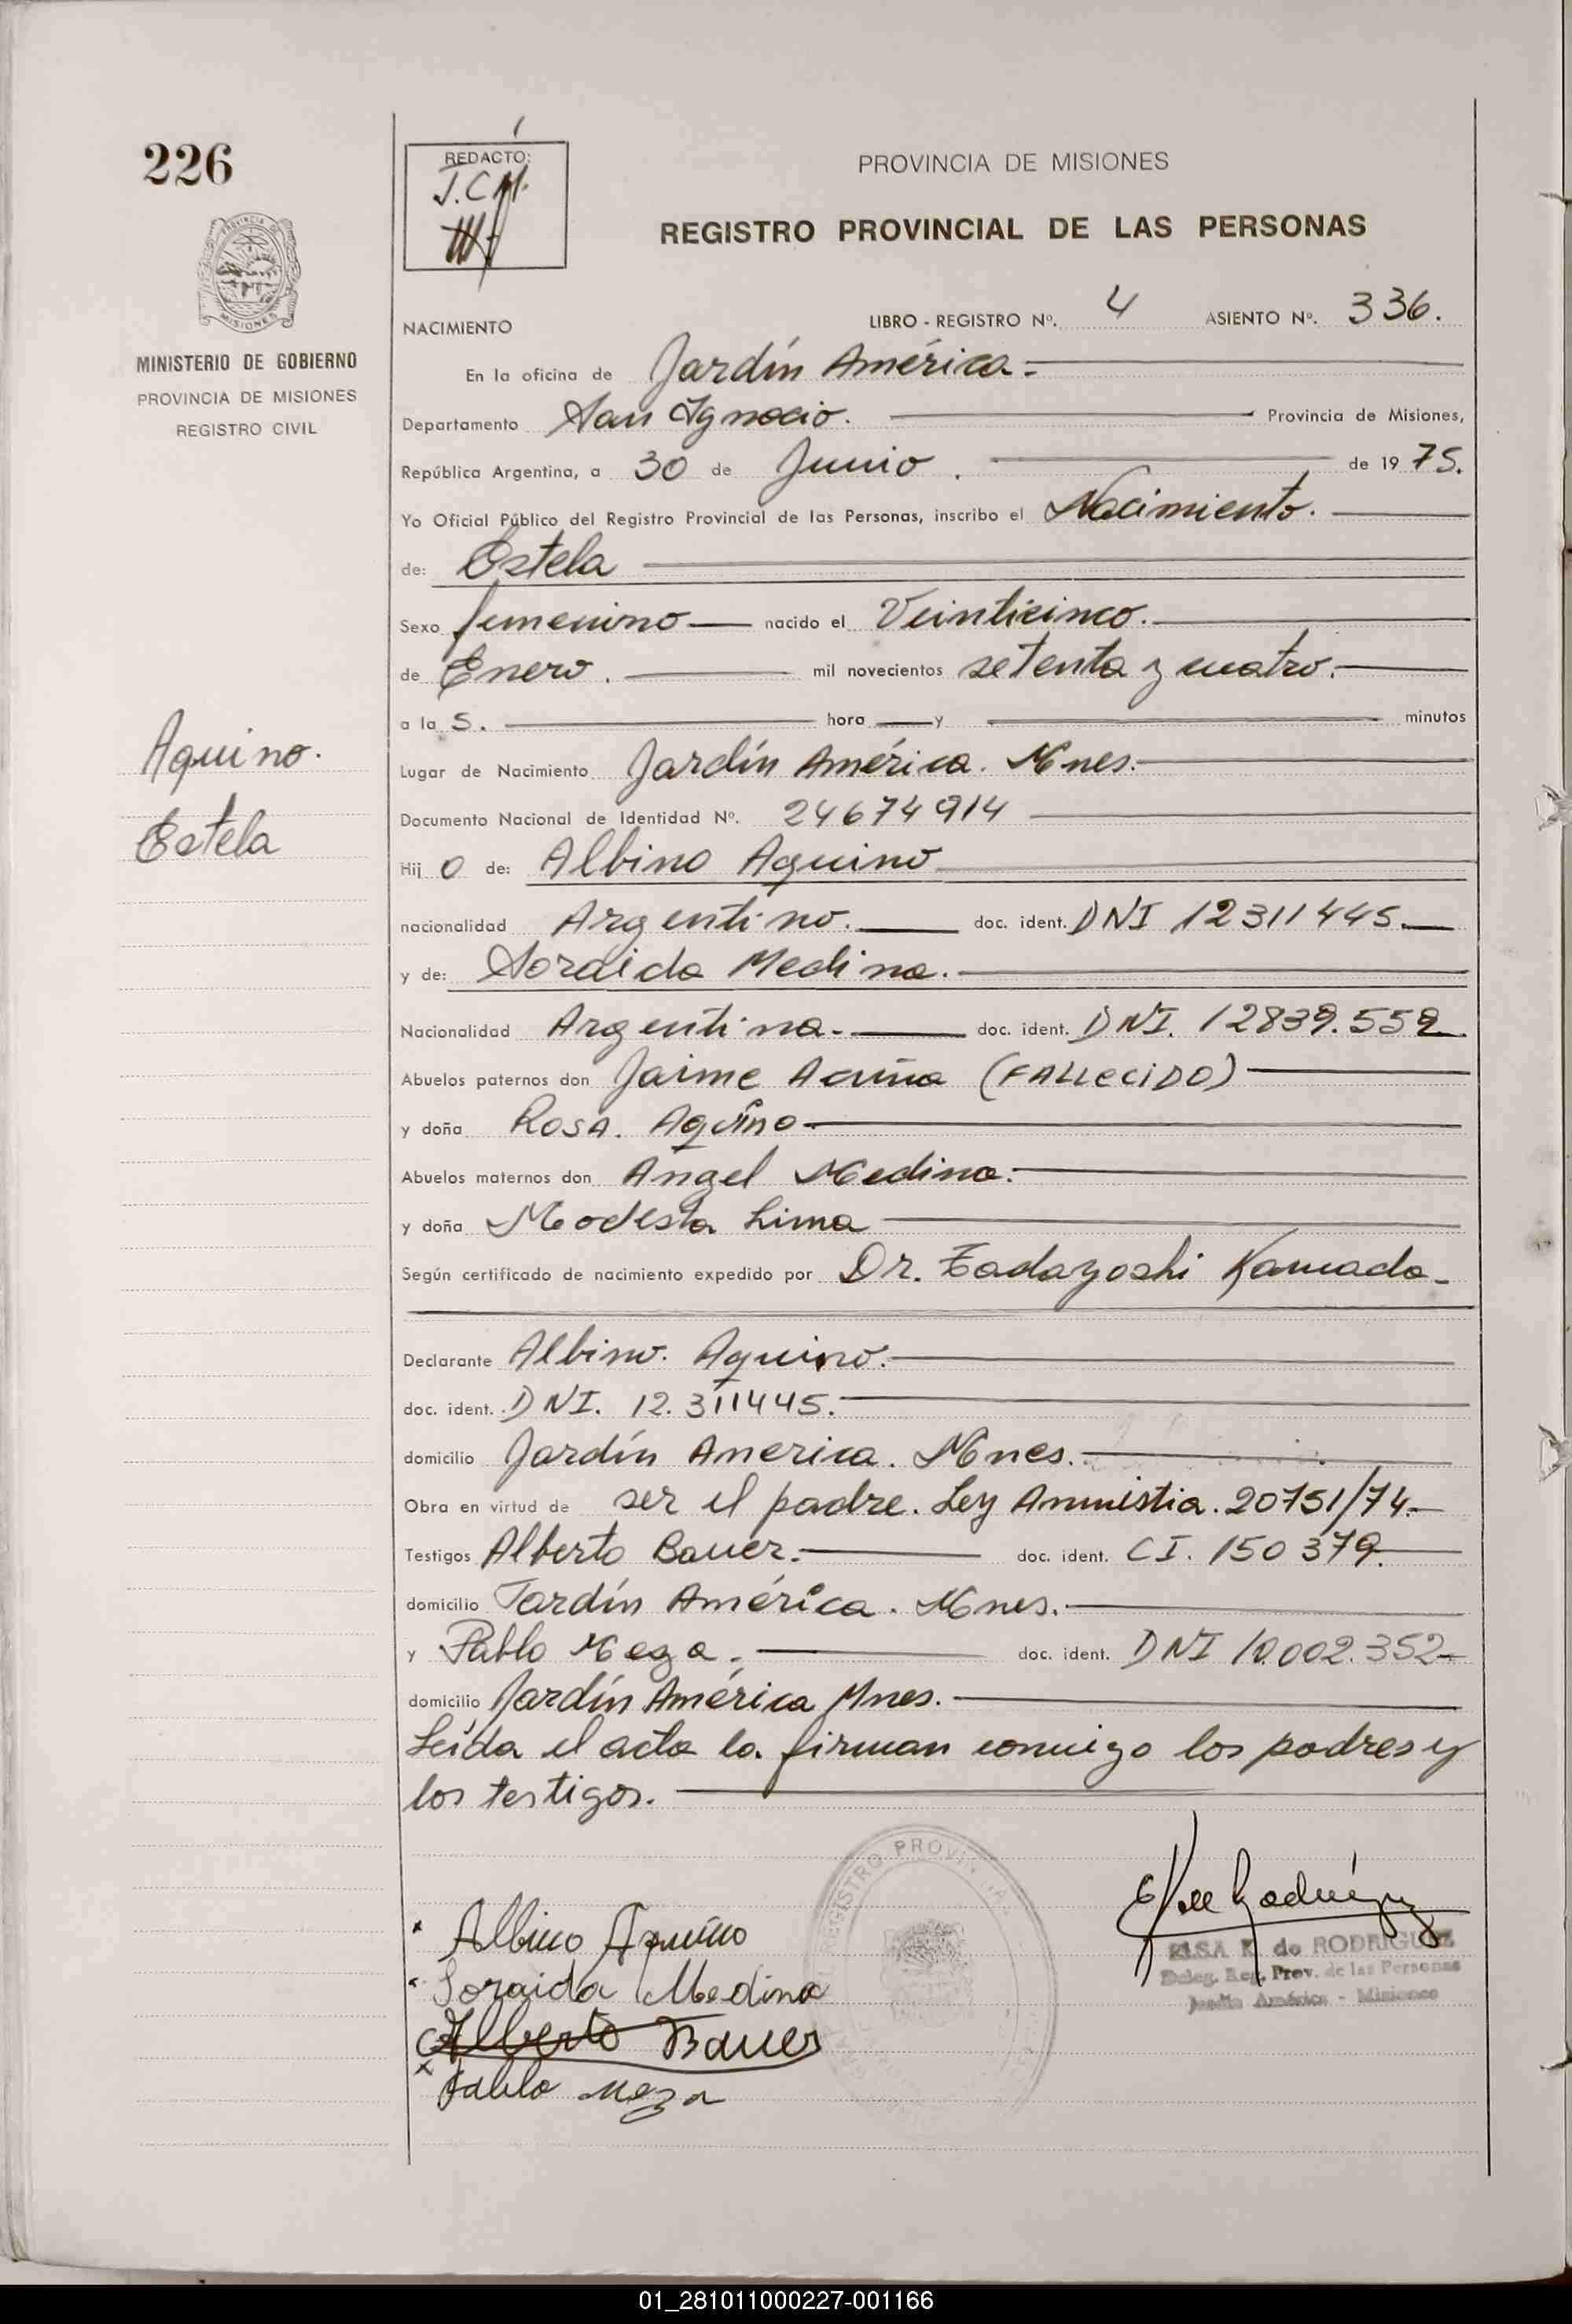 226
REDACTO:
J.C.M.
PROVINCIA DE MISIONES
REGISTRO PROVINCIAL DE LAS PERSONAS
PROVINCIA DE
MISIONES
MINISTERIO DE GOBIERNO
PROVINCIA DE MISIONES
REGISTRO CIVIL
NACIMIENTO LIBRO - REGISTRO Nº. 4 ASIENTO Nº. 336.
En la oficina de Jardín América.-
Departamento San Ignacio. Provincia de Misiones,
República Argentina, a 30 de Junio. de 1975.
Yo Oficial Público del Registro Provincial de las Personas, inscribo el Nacimiento.
de: Estela
Sexo femenino nacido el Veinticinco.
de Enero. mil novecientos setenta y cuatro.
a la 5. hora y minutos
Aquino.
Estela
Lugar de Nacimiento Jardín América. Mnes.
Documento Nacional de Identidad Nº. 24674914
Hijo de: Albino Aquino
nacionalidad Argentino. doc. ident. DNI 12311445.
y de: Soraida Medina.
Nacionalidad Argentina. doc. ident. DNI. 12839.552
Abuelos paternos don Jaime Acuña (FALLECIDO)
y doña ROSA. Aquino
Abuelos maternos don Angel Medina.
y doña Modesta Lima
Según certificado de nacimiento expedido por Dr. Tadayoshi Kamada
Declarante Albino. Aquino.
doc. ident. DNI. 12.311445.
domicilio Jardín America. Mnes.
Obra en virtud de ser el padre. Ley Amnistia. 20751/74.
Testigos Alberto Bauer. doc. ident. CI. 150379.
domicilio Jardín América. Mnes.
y Pablo Meza. doc. ident. DNI 10.002.352
domicilio Jardín América Mnes.
Leída el acta la firman conmigo los padres y
los testigos.
REGISTRO PROVINCIAL
Albino Aquino
Soraida Medina
Alberto Bauer
Pablo Meza
ELSA K. de RODRIGUEZ
Deleg. Reg. Prov. de las Personas
Jardín América - Misiones
01_281011000227-001166